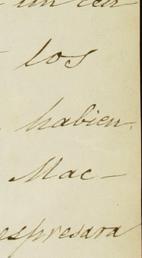 un
los
habien
Mac-
espresara